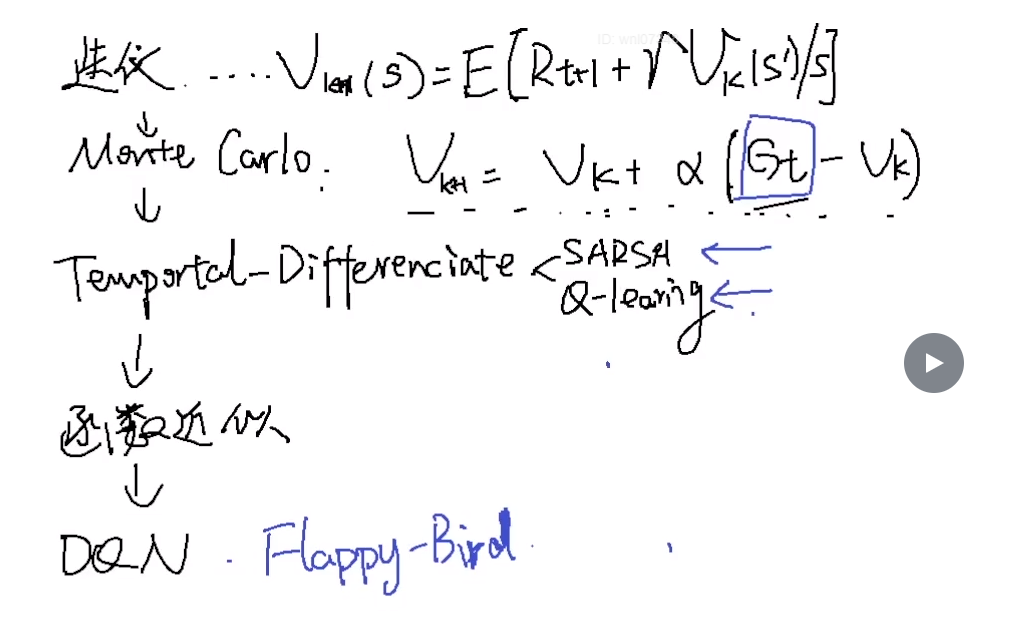 迭代 .... V_{k+1}(s) = E[R_{t+1} + γV_k(s')/s]
↓
Monte Carlo. V_{k+1} = V_k + α(G_t - V_k)
↓
Temportal-Differenciate < SARSA ←
Q-learing ←
↓
函数近似
↓
DQN. Flappy-Bird